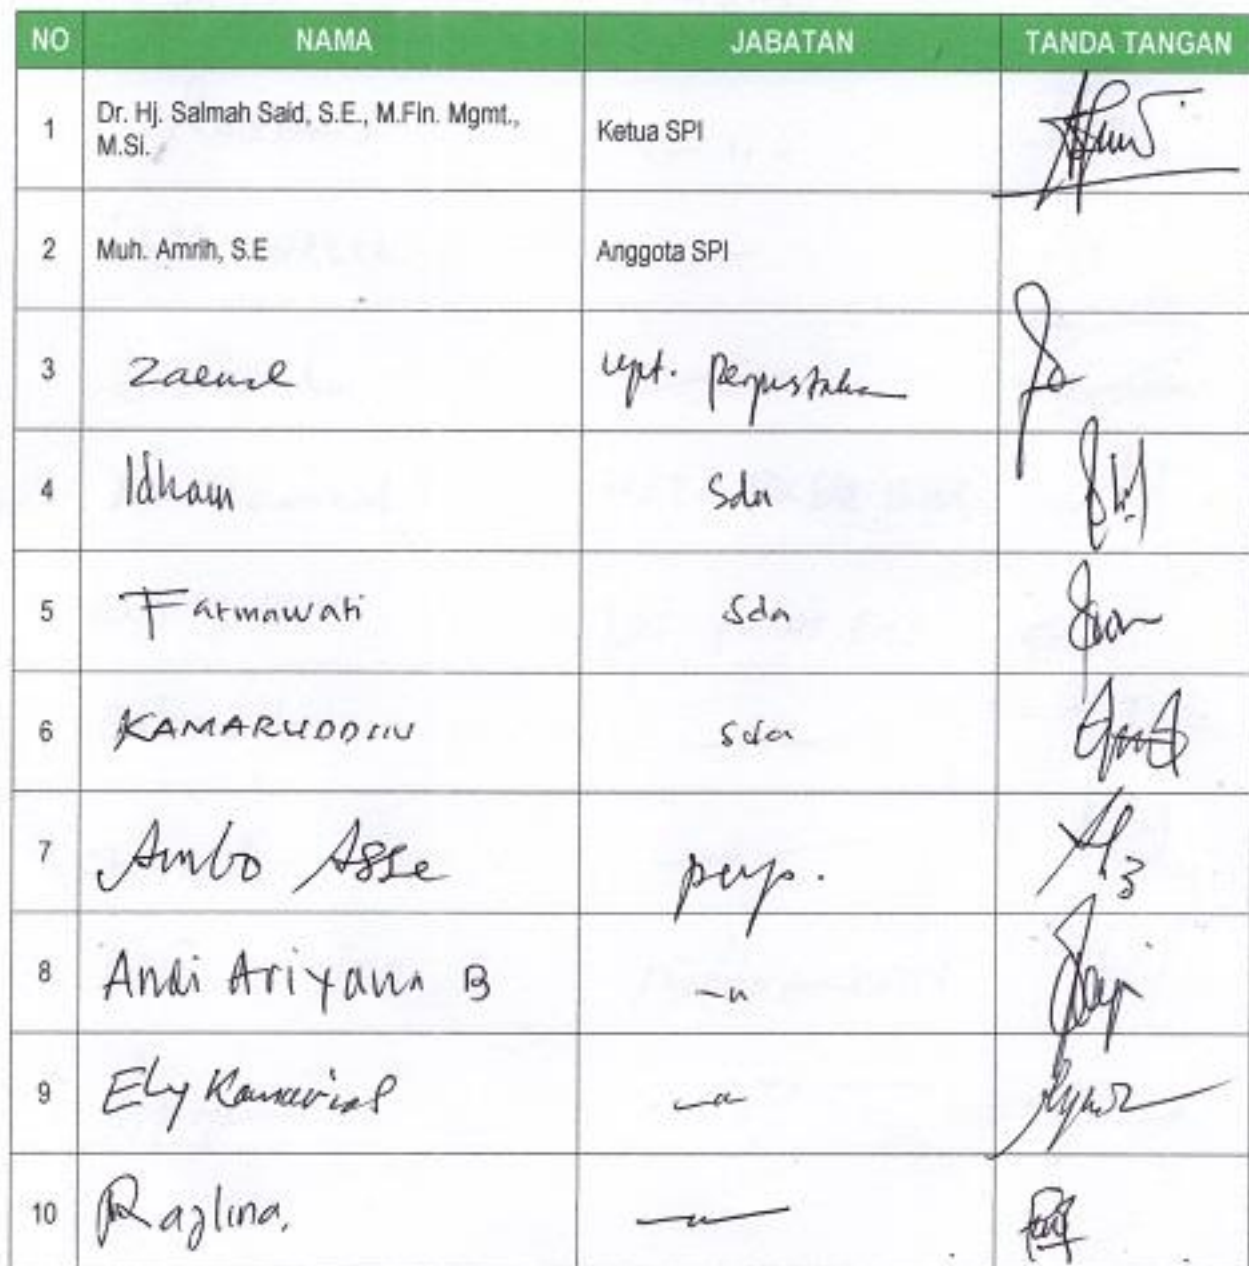 NO NAMA JABATAN TANDA TANGAN
1 Dr. Hj. Salmah Said, S.E., M.Fin. Mgmt.,
M.Si. Ketua SPI
2 Muh. Amrih, S.E Anggota SPI
3 upt. Perpustakaan
4 Idham Sda
5 Fatmawati Sda
6 KAMARUDDIN sda
7 Ambo Asse perp.
8 Andi Ariyana B
9 Ely
10